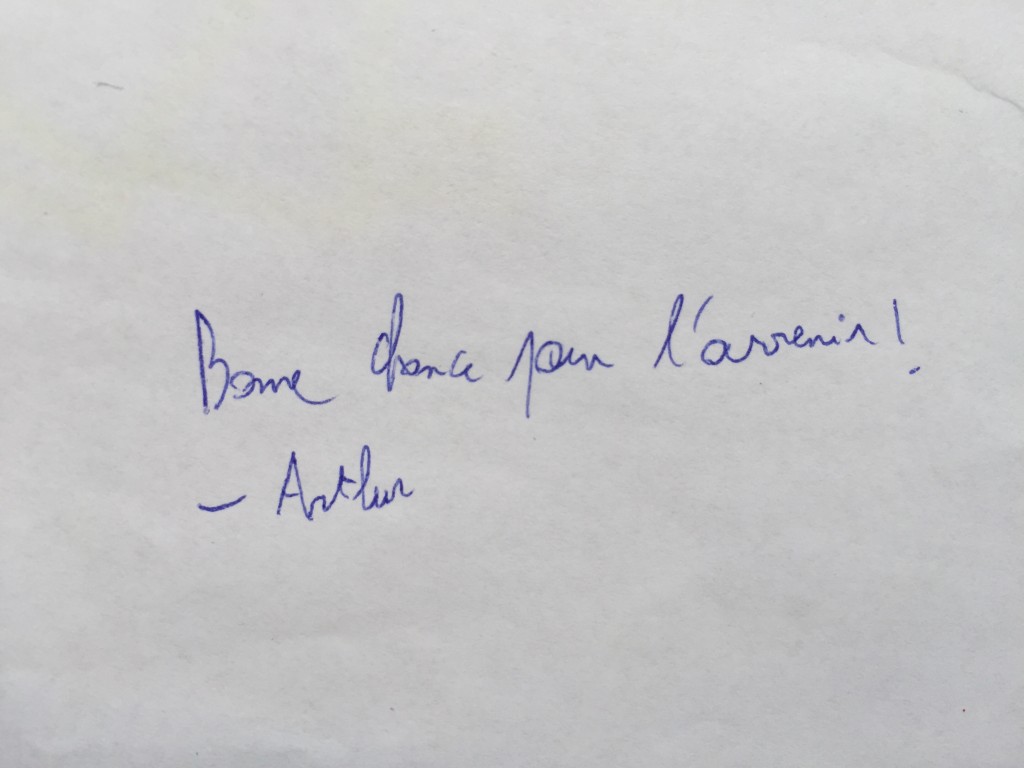 Bonne chance pour l'avenir!
- Arthur